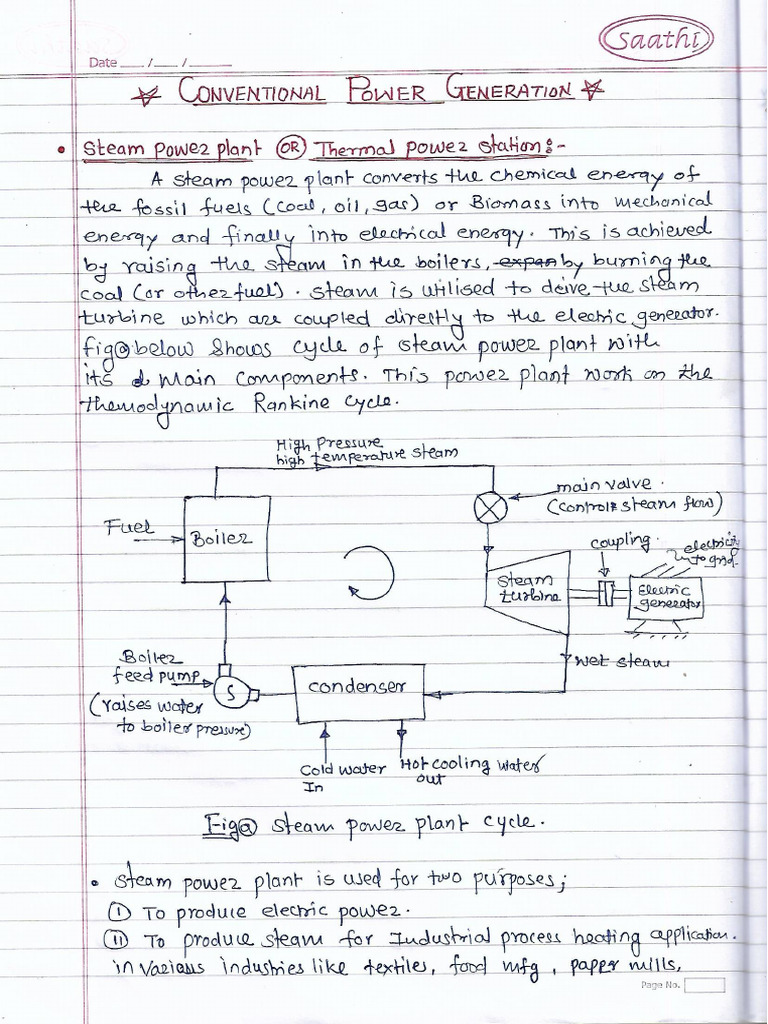 Saathi
Date ___/___/______
☆ CONVENTIONAL POWER GENERATION ☆
• Steam power plant OR Thermal power station:-
A steam power plant converts the chemical energy of
the fossil fuels (coal, oil, gas) or Biomass into mechanical
energy and finally into electrical energy. This is achieved
by raising the steam in the boilers, expan by burning the
coal (or other fuel). Steam is utilised to deive the steam
turbine which are coupled directly to the electric generator.
fig@ below shows cycle of steam power plant with
its main components. This power plant work on the
themodynamic Rankine cycle.
High Pressure
high temperature steam
main valve.
(controls steam flow)
Fuel
Boiler
coupling.
electricity
to grid.
Steam
turbine
Electric
generator
wet steam
Boiler
feed pump
(raises water
to boiler pressure)
S
condenser
Cold water
In
Hot cooling water
out
Fig@ Steam power plant cycle.
• Steam power plant is used for two purposes;
(I) To produce electric power.
(II) To produce steam for Industrial process heating application.
in various industries like textiles, food mfg, paper mills,
Page No.